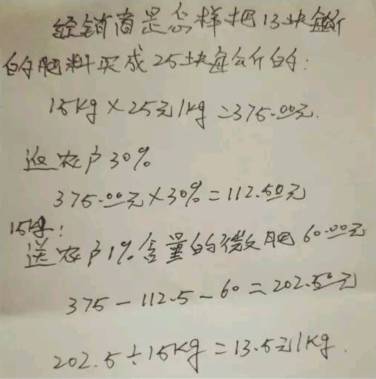 经销商是怎样把13块每公斤
的肥料买成25块每公斤的:
15kg×25元/kg=375.00元.
返农户30%
375.00元×30%=112.50元
15kg:
送农户1%含量的微肥60.00元
375-112.5-60=202.50元
202.5÷15kg=13.5元/kg